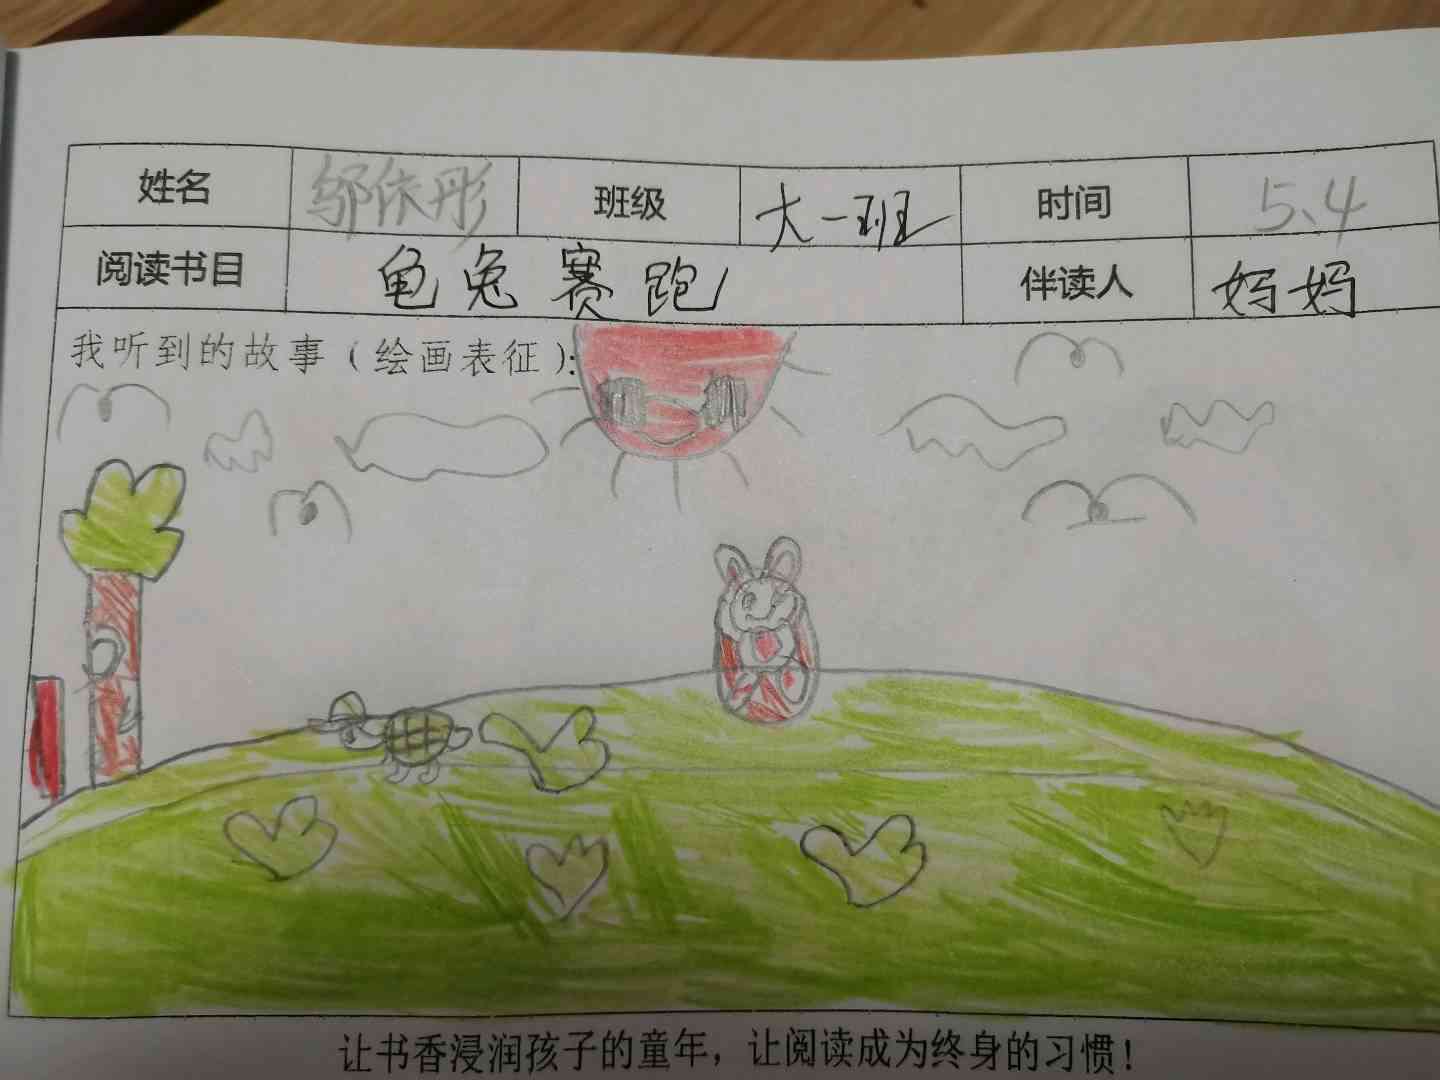 姓名 邬依彤 班级 大一班 时间 5、4
阅读书目 龟兔赛跑 伴读人 妈妈
我听到的故事（绘画表征）：
让书香浸润孩子的童年，让阅读成为终身的习惯！